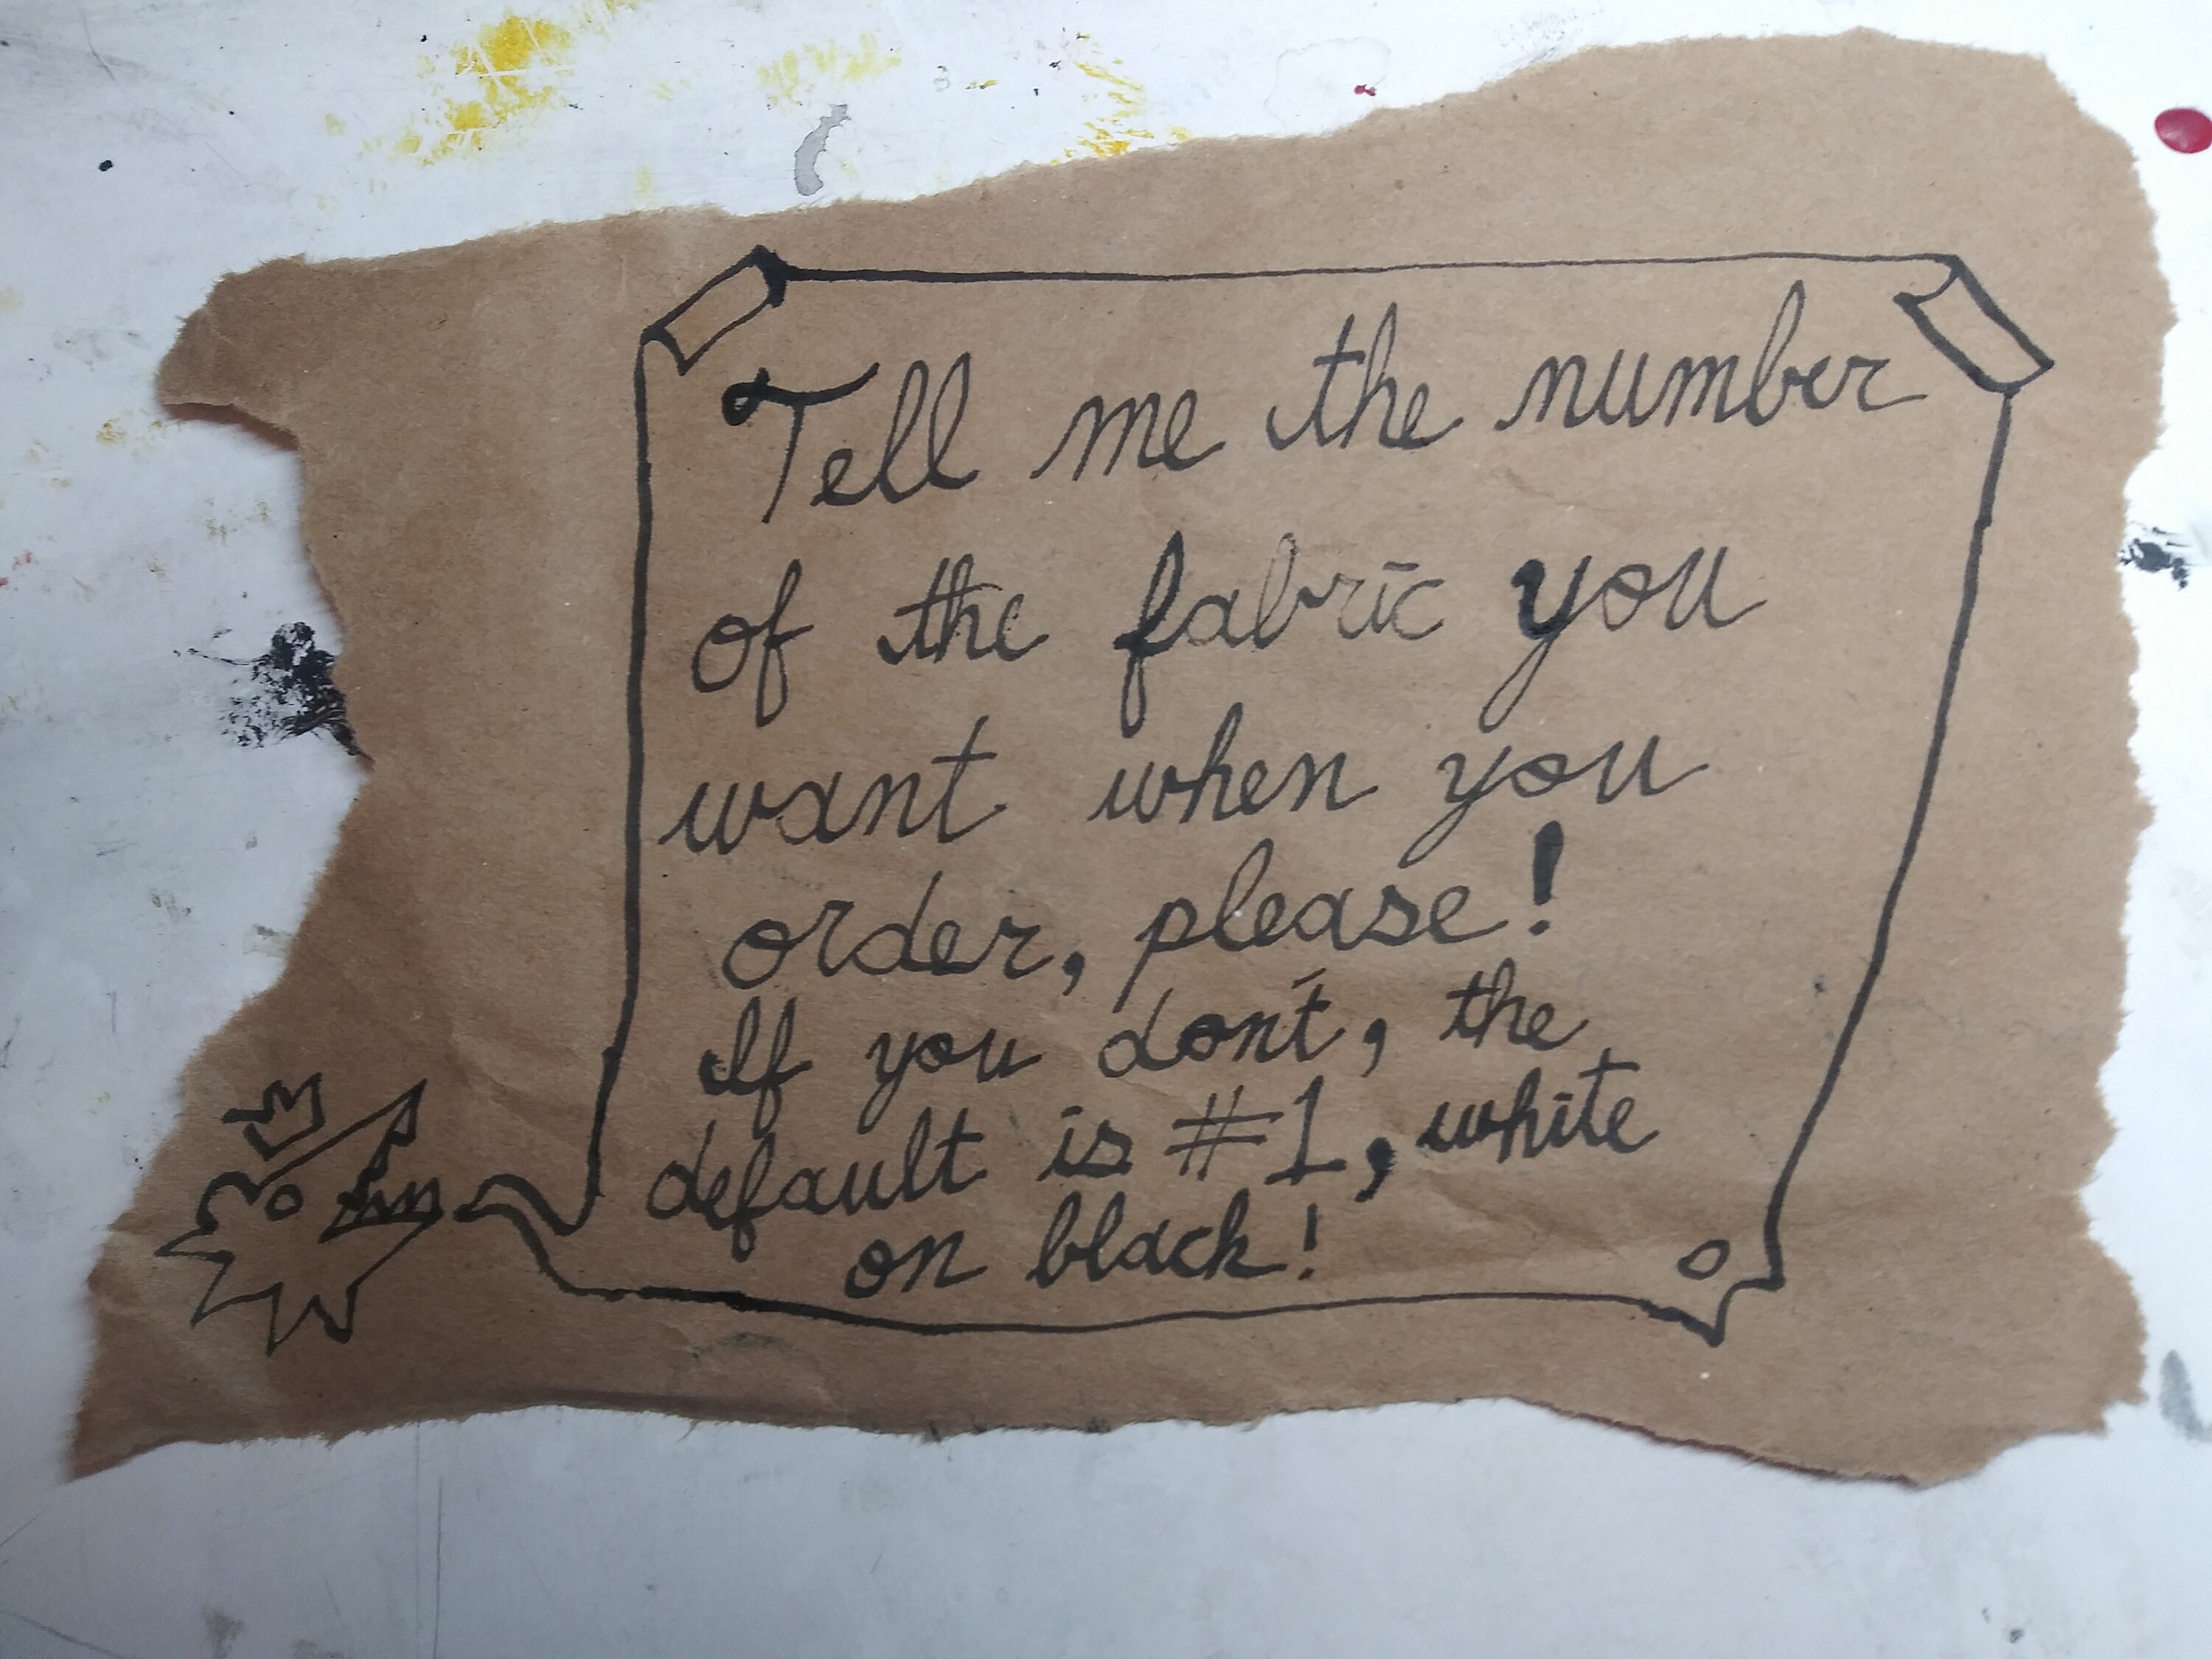 Tell me the number
of the fabric you
want when you
order, please!
If you don't, the
default is #1, white
on black!